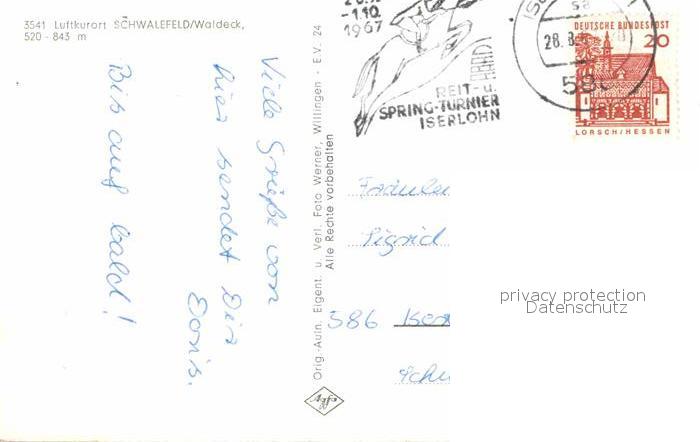 3541 Luftkurort SCHWALEFELD/Waldeck,
520 - 843 m
Viele Grüße von
hier sendet Dir
Doris.
Bis auf bald!
Orig.-Aufn. Eigent. u. Verl. Foto Werner, Willingen - E.V. 24
Alle Rechte vorbehalten
Agfa
-1.10.
1967
HARDT
REIT- u.
SPRING-TURNIER
ISERLOHN
28.8.
58
DEUTSCHE BUNDESPOST
20
LORSCH/HESSEN
Fräulei
Sigrid
586 Iser
Schu
privacy protection
Datenschutz